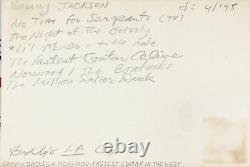 SAMMY JACKSON d: 4/'95
No Time for Sergeants (TV)
The Night of The Grizzly
*Li'l Abner - title role
The Fastest Guitar Alive
Norwood / The Boatniks
The Million Dollar Duck
L.A.
SAMMY JACKSON NORWOOD FASTEST GUITAR IN THE WEST